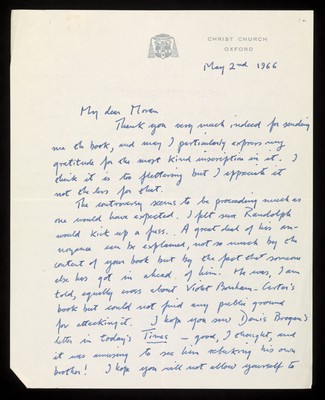 CHRIST CHURCH
OXFORD
May 2nd 1966
My dear Moran
Thank you very much indeed for sending
me the book, and may I particularly express my
gratitude for the most kind inscription in it. I
think it is too flattering but I appreciate it
not the less for that.
The controversy seems to be proceeding much as
one would have expected. I felt sure Randolph
would kick up a fuss. A great deal of his an-
noyance can be explained, not so much by the
content of your book but by the fact that someone
else has got in ahead of him. He was, I am
told, equally cross about Violet Bonham-Carter's
book but could not find any public ground
for attacking it. I hope you saw Denis Brogan's
letter in today's Times - good, I thought, and
it was amusing to see him rebuking his own
brother! I hope you will not allow yourself to